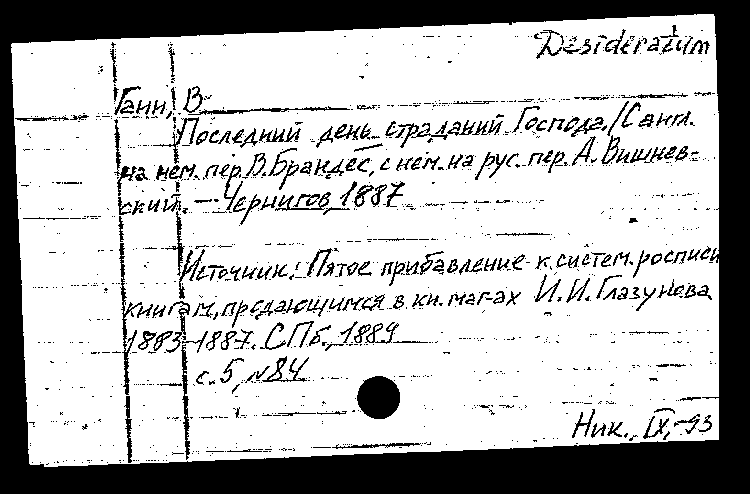 Desideratum
Ганн, В.
Последний день страданий Господа./С англ.
на нем. пер. В. Брандес, с нем. на рус. пер. А. Вишнев-
ский. — Чернигов, 1887
Источник: Пятое прибавление к систем. росписи
книгам, продающимся в кн. маг-ах И. И. Глазунова
1883-1887. СПб., 1889
с. 5, №84
Ник., IX,-93